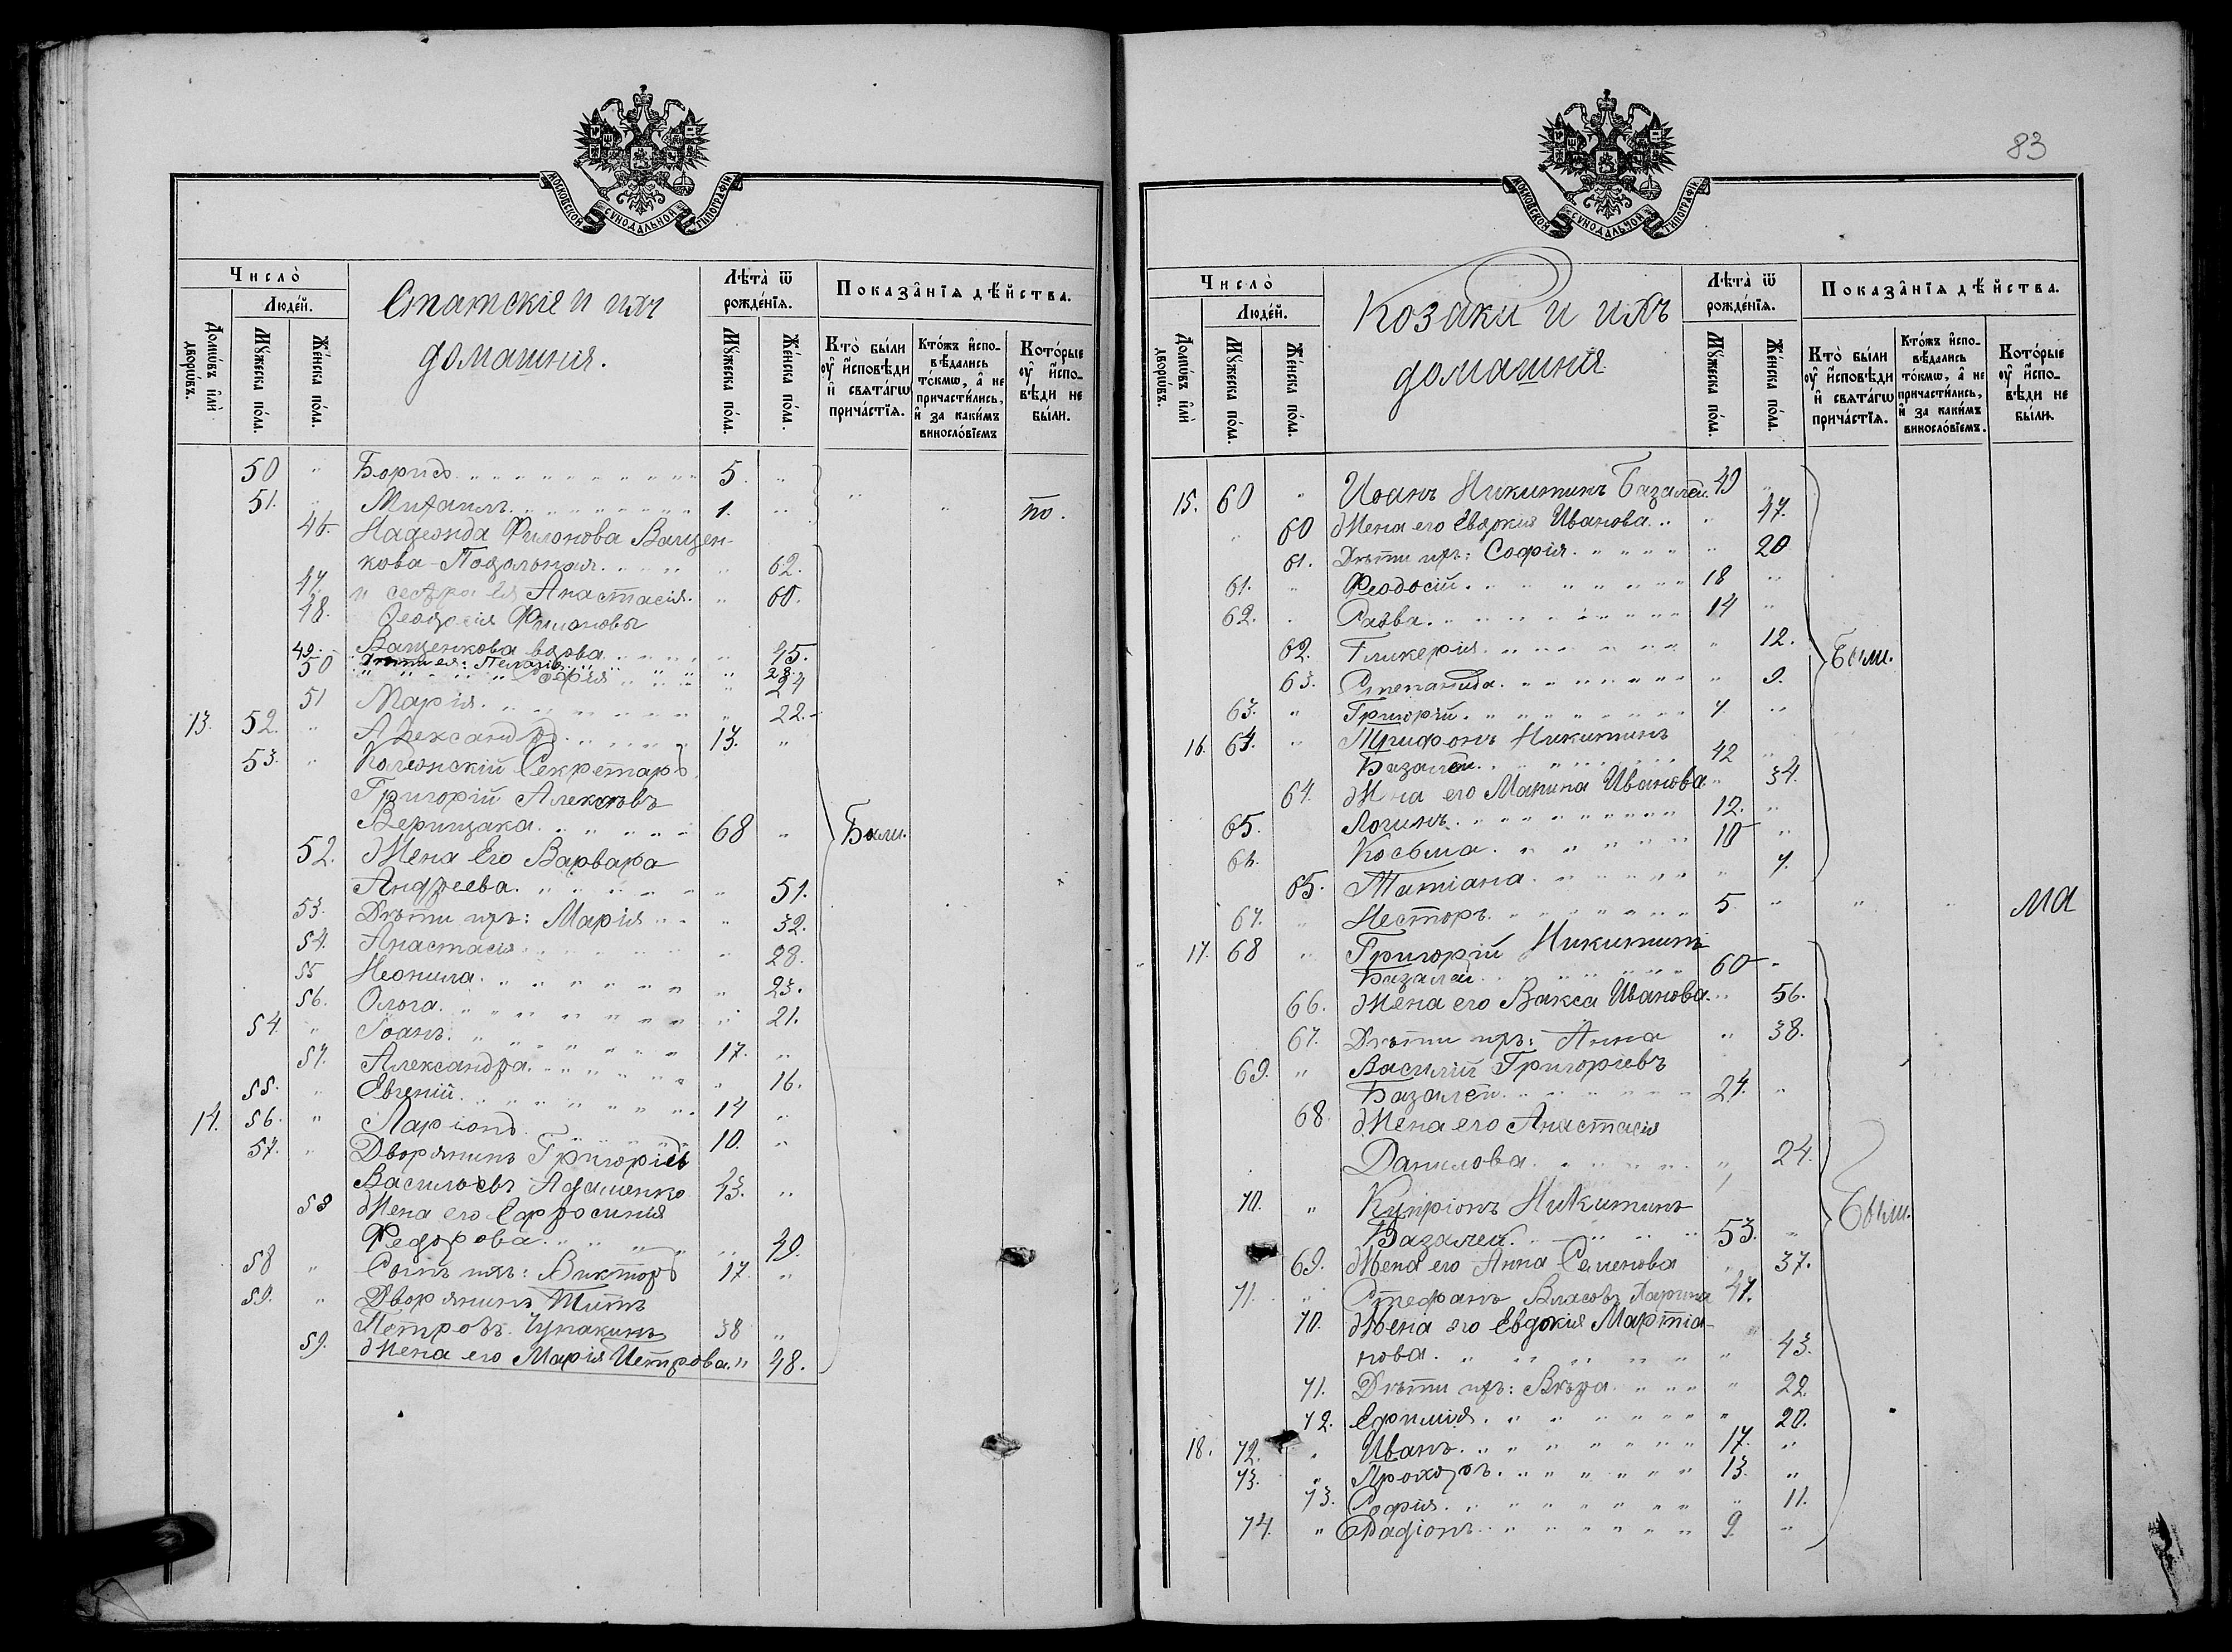 МОСКОВСКОЙ СѴНОДАЛЬНОЙ ТИПОГРАФІИ
Число̀
Людéй.
Домѡ́въ и҆лѝ дворѡ́въ.
Мꙋ́жеска по́ла.
Же́нска по́ла.
Статскіе и ихъ
домашнія.
Лѣта̀ ѿ
рожде́нїѧ.
Мꙋ́жеска по́ла.
Же́нска по́ла.
Показа̂нїѧ дѣ́йства.
Кто̀ бы́ли
ᲂу҆ и҆́сповѣди
и҆ свѧта́гѡ
прича́стїѧ.
Кто́жъ и҆спо-
вѣ́дались
то́кмѡ, а҆ не
причасти́лись,
и҆ за каки́мъ
виносло́вїемъ
Кото́рые
ᲂу҆ и҆́спо-
вѣди не
бы́ли.
50 " Борисъ 5. "
51. " Михаилъ 1. " по.
46. Надежда Филонова Ващен-
кова-Подольная " 62.
47. и сестра ея Анастасія. " 60.
48. Феодосія Филоновы
Ващенкова вдова " 45.
49. Дѣти ея: Пелагія " 28.
50 Софія " 24
51 Марія " 22.
13. 52. " Александръ 13. "
53. " Коллежскій Секретарь
Григорій Алексѣевъ
Верицака 68 "
52. Жена Его Варвара
Андреева " 51.
53. Дѣти ихъ: Марія " 32.
54. Анастасія " 28.
55 Неонила " 23.
56. Ольга " 21.
54. " Іоанъ 17. "
57. Александра " 16.
55. " Евгеній 14 "
14. 56. " Ларіонъ 10. "
57. " Дворянинъ Григорій
Васильевъ Адаменко 43. "
58 Жена его Ефросинія
Федорова " 49.
58 " Сынъ ихъ: Викторъ 17. "
59. " Дворянинъ Титъ
Петровъ 38 "
59. Жена его Марія Петрова " 48.
Были.
83
МОСКОВСКОЙ СѴНОДАЛЬНОЙ ТИПОГРАФІИ
Число̀
Людéй.
Домѡ́въ и҆лѝ дворѡ́въ.
Мꙋ́жеска по́ла.
Же́нска по́ла.
Козаки и ихъ
домашнія
Лѣта̀ ѿ
рожде́нїѧ.
Мꙋ́жеска по́ла.
Же́нска по́ла.
Показа̂нїѧ дѣ́йства.
Кто̀ бы́ли
ᲂу҆ и҆́сповѣди
и҆ свѧта́гѡ
прича́стїѧ.
Кто́жъ и҆спо-
вѣ́дались
то́кмѡ, а҆ не
причасти́лись,
и҆ за каки́мъ
виносло́вїемъ.
Кото́рые
ᲂу҆ и҆́спо-
вѣди не
бы́ли.
15. 60 " Иоанъ Никитинъ Базалей 49 "
60 Жена его Евдокія Иванова " 47.
61. Дѣти ихъ: Софія " 20
61. " Феодосій 18 "
62. " Савва 14 "
62. Гликерія " 12.
63. Степанида " 9.
63. " Григорій 7. "
16. 64. " Трифонъ Никитинъ
Базалей 42 "
64. Жена его Марина Иванова " 34.
65. Логинъ 12. "
66. Косьма 10 "
65. Татіана " 7.
67. " Несторъ 5 " " " ма
17. 68 " Григорій Никитинъ
Базалей 60 "
66. Жена его Васса Иванова " 56.
67. Дѣти ихъ: Анна " 38.
69. " Василій Григоріевъ
Базалей 24. "
68. Жена его Анастасія
Данилова " 24.
70. " Купріонъ Никитинъ
Базалей 53. "
69. Жена его Анна Семенова " 37.
71. " Стефанъ Власовъ 47.
70. Жена его Евдокія Мартіа-
нова " 43.
71. Дѣти ихъ: Вѣра " 22.
72. Ефимія " 20.
18. 72. " Иванъ 17. "
73. " Прохоръ 13. "
73. Софія " 11.
74. " Радіонъ 9. "
Были.
Были.